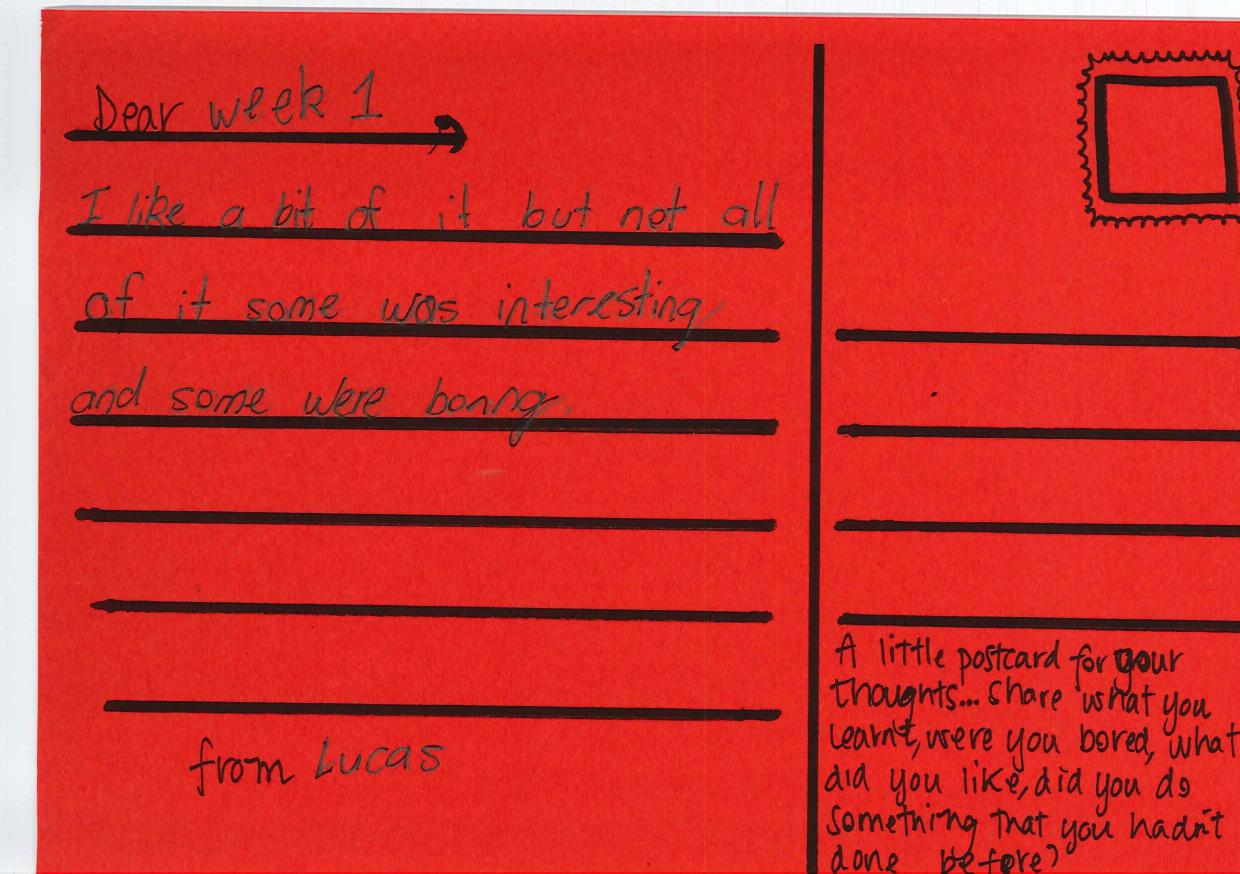 Dear week 1
I like a bit of it but not all
of it some was interesting,
and some were boring.
from Lucas
A little postcard for your
thoughts... Share what you
learn't, were you bored, what
did you like, did you do
something that you hadn't
done before?